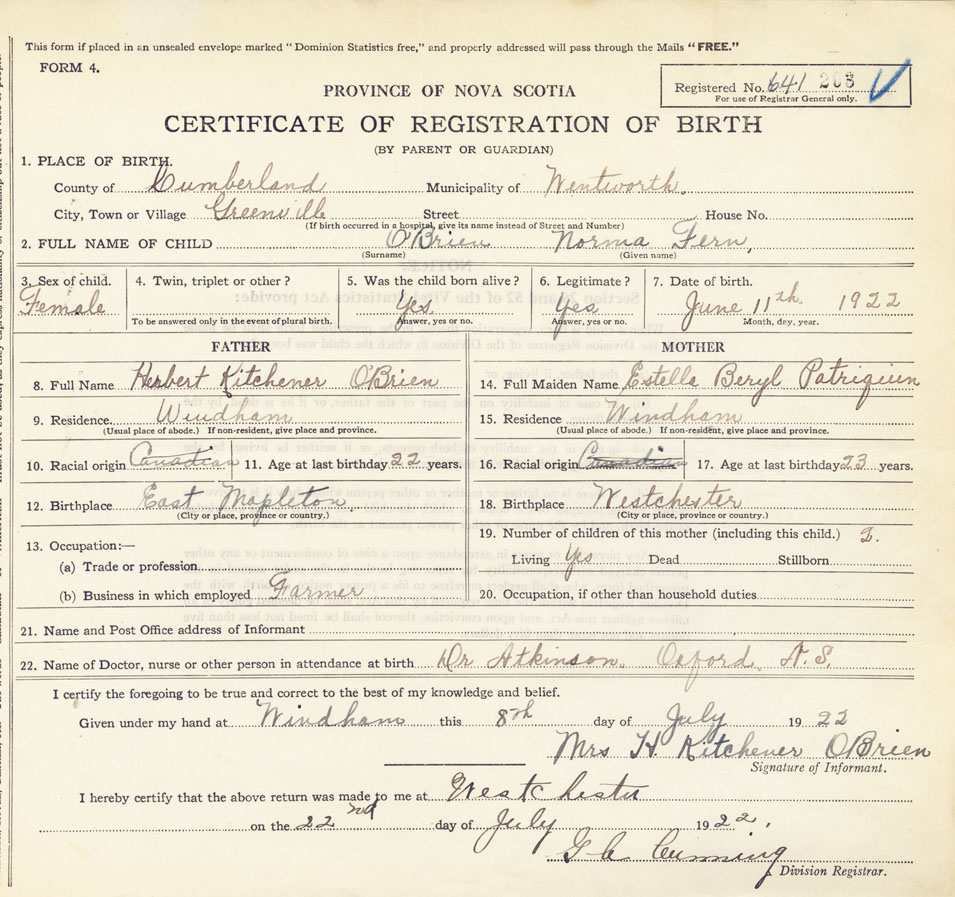 This form if placed in an unsealed envelope marked "Dominion Statistics free," and properly addressed will pass through the Mails "FREE."
FORM 4.
Registered No. 641 263
For use of Registrar General only.
PROVINCE OF NOVA SCOTIA
CERTIFICATE OF REGISTRATION OF BIRTH
(BY PARENT OR GUARDIAN)
1. PLACE OF BIRTH.
County of Cumberland Municipality of Wentworth.
City, Town or Village Greenville Street House No.
(If birth occurred in a hospital, give its name instead of Street and Number)
2. FULL NAME OF CHILD O'Brien Norma Fern,
(Surname) (Given name)
3. Sex of child. 4. Twin, triplet or other? 5. Was the child born alive? 6. Legitimate? 7. Date of birth.
Female Yes. Yes June 11th 1922
To be answered only in the event of plural birth. Answer, yes or no. Answer, yes or no. Month, day, year.
FATHER MOTHER
8. Full Name Herbert Kitchener O'Brien 14. Full Maiden Name Estella Beryl Patriquin
9. Residence Windham 15. Residence Windham
(Usual place of abode.) If non-resident, give place and province. (Usual place of abode.) If non-resident, give place and province.
10. Racial origin Canadian 11. Age at last birthday 22 years. 16. Racial origin Canadian 17. Age at last birthday 23 years.
12. Birthplace East Mapleton. 18. Birthplace Westchester
(City or place, province or country.) (City or place, province or country.)
19. Number of children of this mother (including this child.) 2.
13. Occupation:—
Living Yes Dead Stillborn
(a) Trade or profession
(b) Business in which employed Farmer 20. Occupation, if other than household duties
21. Name and Post Office address of Informant
22. Name of Doctor, nurse or other person in attendance at birth Dr Atkinson. Oxford, N. S.
I certify the foregoing to be true and correct to the best of my knowledge and belief.
Given under my hand at Windham this 8th day of July 1922
Mrs H Kitchener O'Brien
Signature of Informant.
I hereby certify that the above return was made to me at Westchester
on the 22nd day of July 1922.
G C Cunning
Division Registrar.